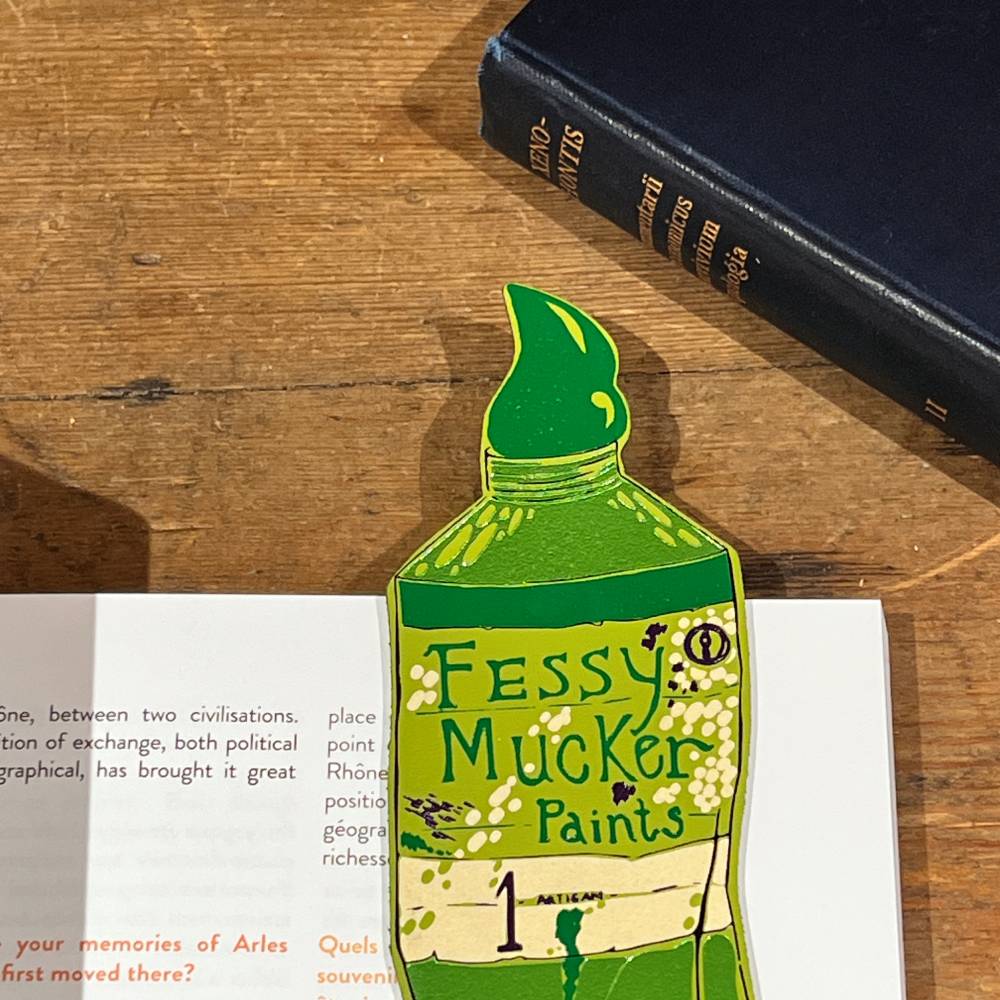 XENO-
II
FESSY
MUCKER
Paints
1 ARTIGAN
between two civilisations.
tion of exchange, both political
graphical, has brought it great
your memories of Arles
first moved there?
place
point
Rhône
positio
géogra
richess
Quels
souveni